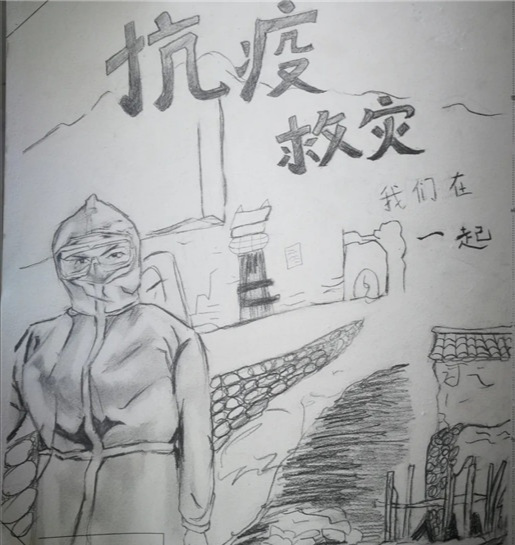 抗疫
救灾
我们在
一起